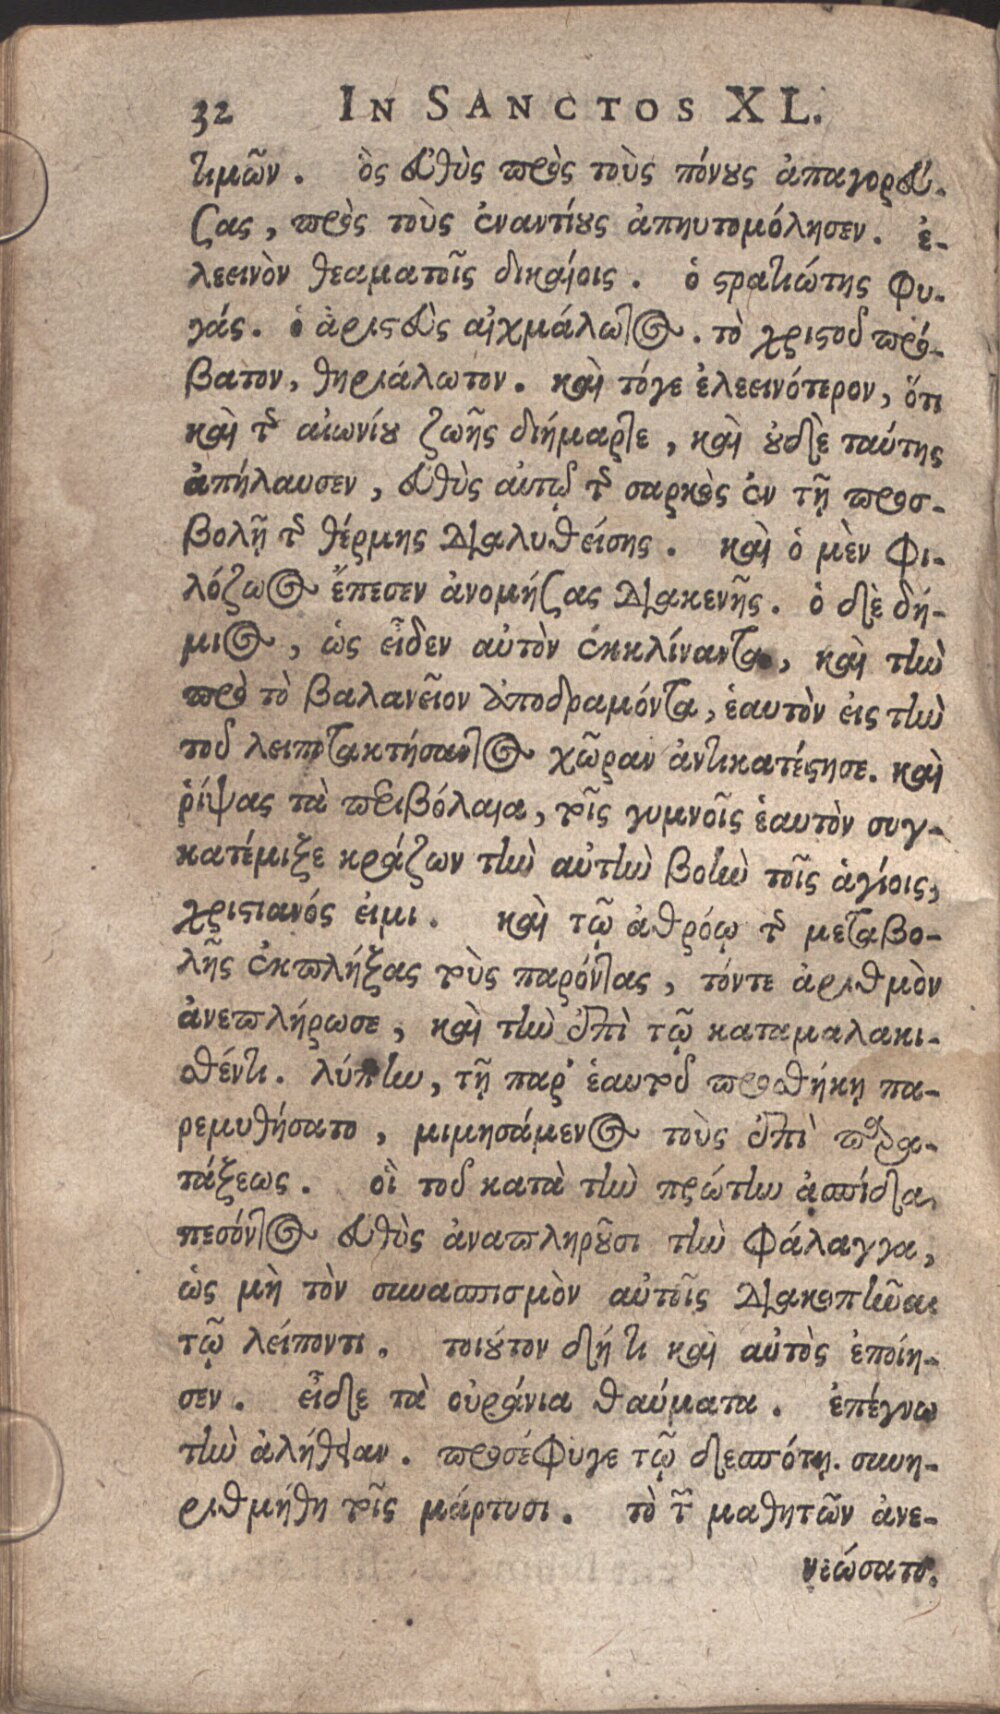 32 IN SANCTOS XL.
τιμῶν. ὃς εὐθὺς πρὸς τοὺς πόνους ἀπαγορεύ-
σας, πρὸς τοὺς ἐναντίους ἀπηυτομόλησεν. ἐ-
λεεινὸν θεαματοῖς δικαίοις. ὁ στρατιώτης φυ-
γάς. ὁ ἀριστεὺς αἰχμάλωτος. τὸ χριστοῦ πρό-
βατον, θηριάλωτον. καὶ τόγε ἐλεεινότερον, ὅτι
καὶ τῆς αἰωνίου ζωῆς διήμαρτε, καὶ οὐδὲ ταύτης
ἀπήλαυσεν, εὐθὺς αὐτῷ τῆς σαρκὸς ἐν τῇ προσ-
βολῇ τῆς θέρμης διαλυθείσης. καὶ ὁ μὲν φι-
λόζωος ἔπεσεν ἀνομήσας διακενῆς. ὁ δὲ δή-
μιος, ὡς εἶδεν αὐτὸν ἐκκλίναντα, καὶ τὴν
πρὸ τὸ βαλανεῖον ἀποδραμόντα, ἑαυτὸν εἰς τὴν
τοῦ λειποτακτήσαντος χῶραν ἀντικατέστησε. καὶ
ῥίψας τὰ περιβόλαια, τοῖς γυμνοῖς ἑαυτὸν συγ-
κατέμιξε κράζων τὴν αὐτὴν βοὴν τοῖς ἁγίοις,
χριστιανός εἰμι. καὶ τῷ ἀθρόῳ τῆς μεταβο-
λῆς ἐκπλήξας τοὺς παρόντας, τόντε ἀριθμὸν
ἀνεπλήρωσε, καὶ τὴν ἐπὶ τῷ καταμαλακι-
θέντι. λύπην, τῇ παρ' ἑαυτοῦ προθήκῃ πα-
ρεμυθήσατο, μιμησάμενος τοὺς ἐπὶ παρα-
τάξεως. οἳ τοῦ κατὰ τὴν πρώτην ἀσπίδα
πεσόντος εὐθὺς ἀναπληροῦσι τὴν φάλαγγα,
ὡς μὴ τὸν συνασπισμὸν αὐτοῖς διακοπῆναι
τῷ λείποντι. τοιοῦτον δή τι καὶ αὐτὸς ἐποίη-
σεν. εἶδε τὰ οὐράνια θαύματα. ἐπέγνω
τὴν ἀλήθειαν. προσέφυγε τῷ δεσπότῃ. συνη-
ριθμήθη τοῖς μάρτυσι. τὸ τῶν μαθητῶν ἀνε-
νεώσατο.